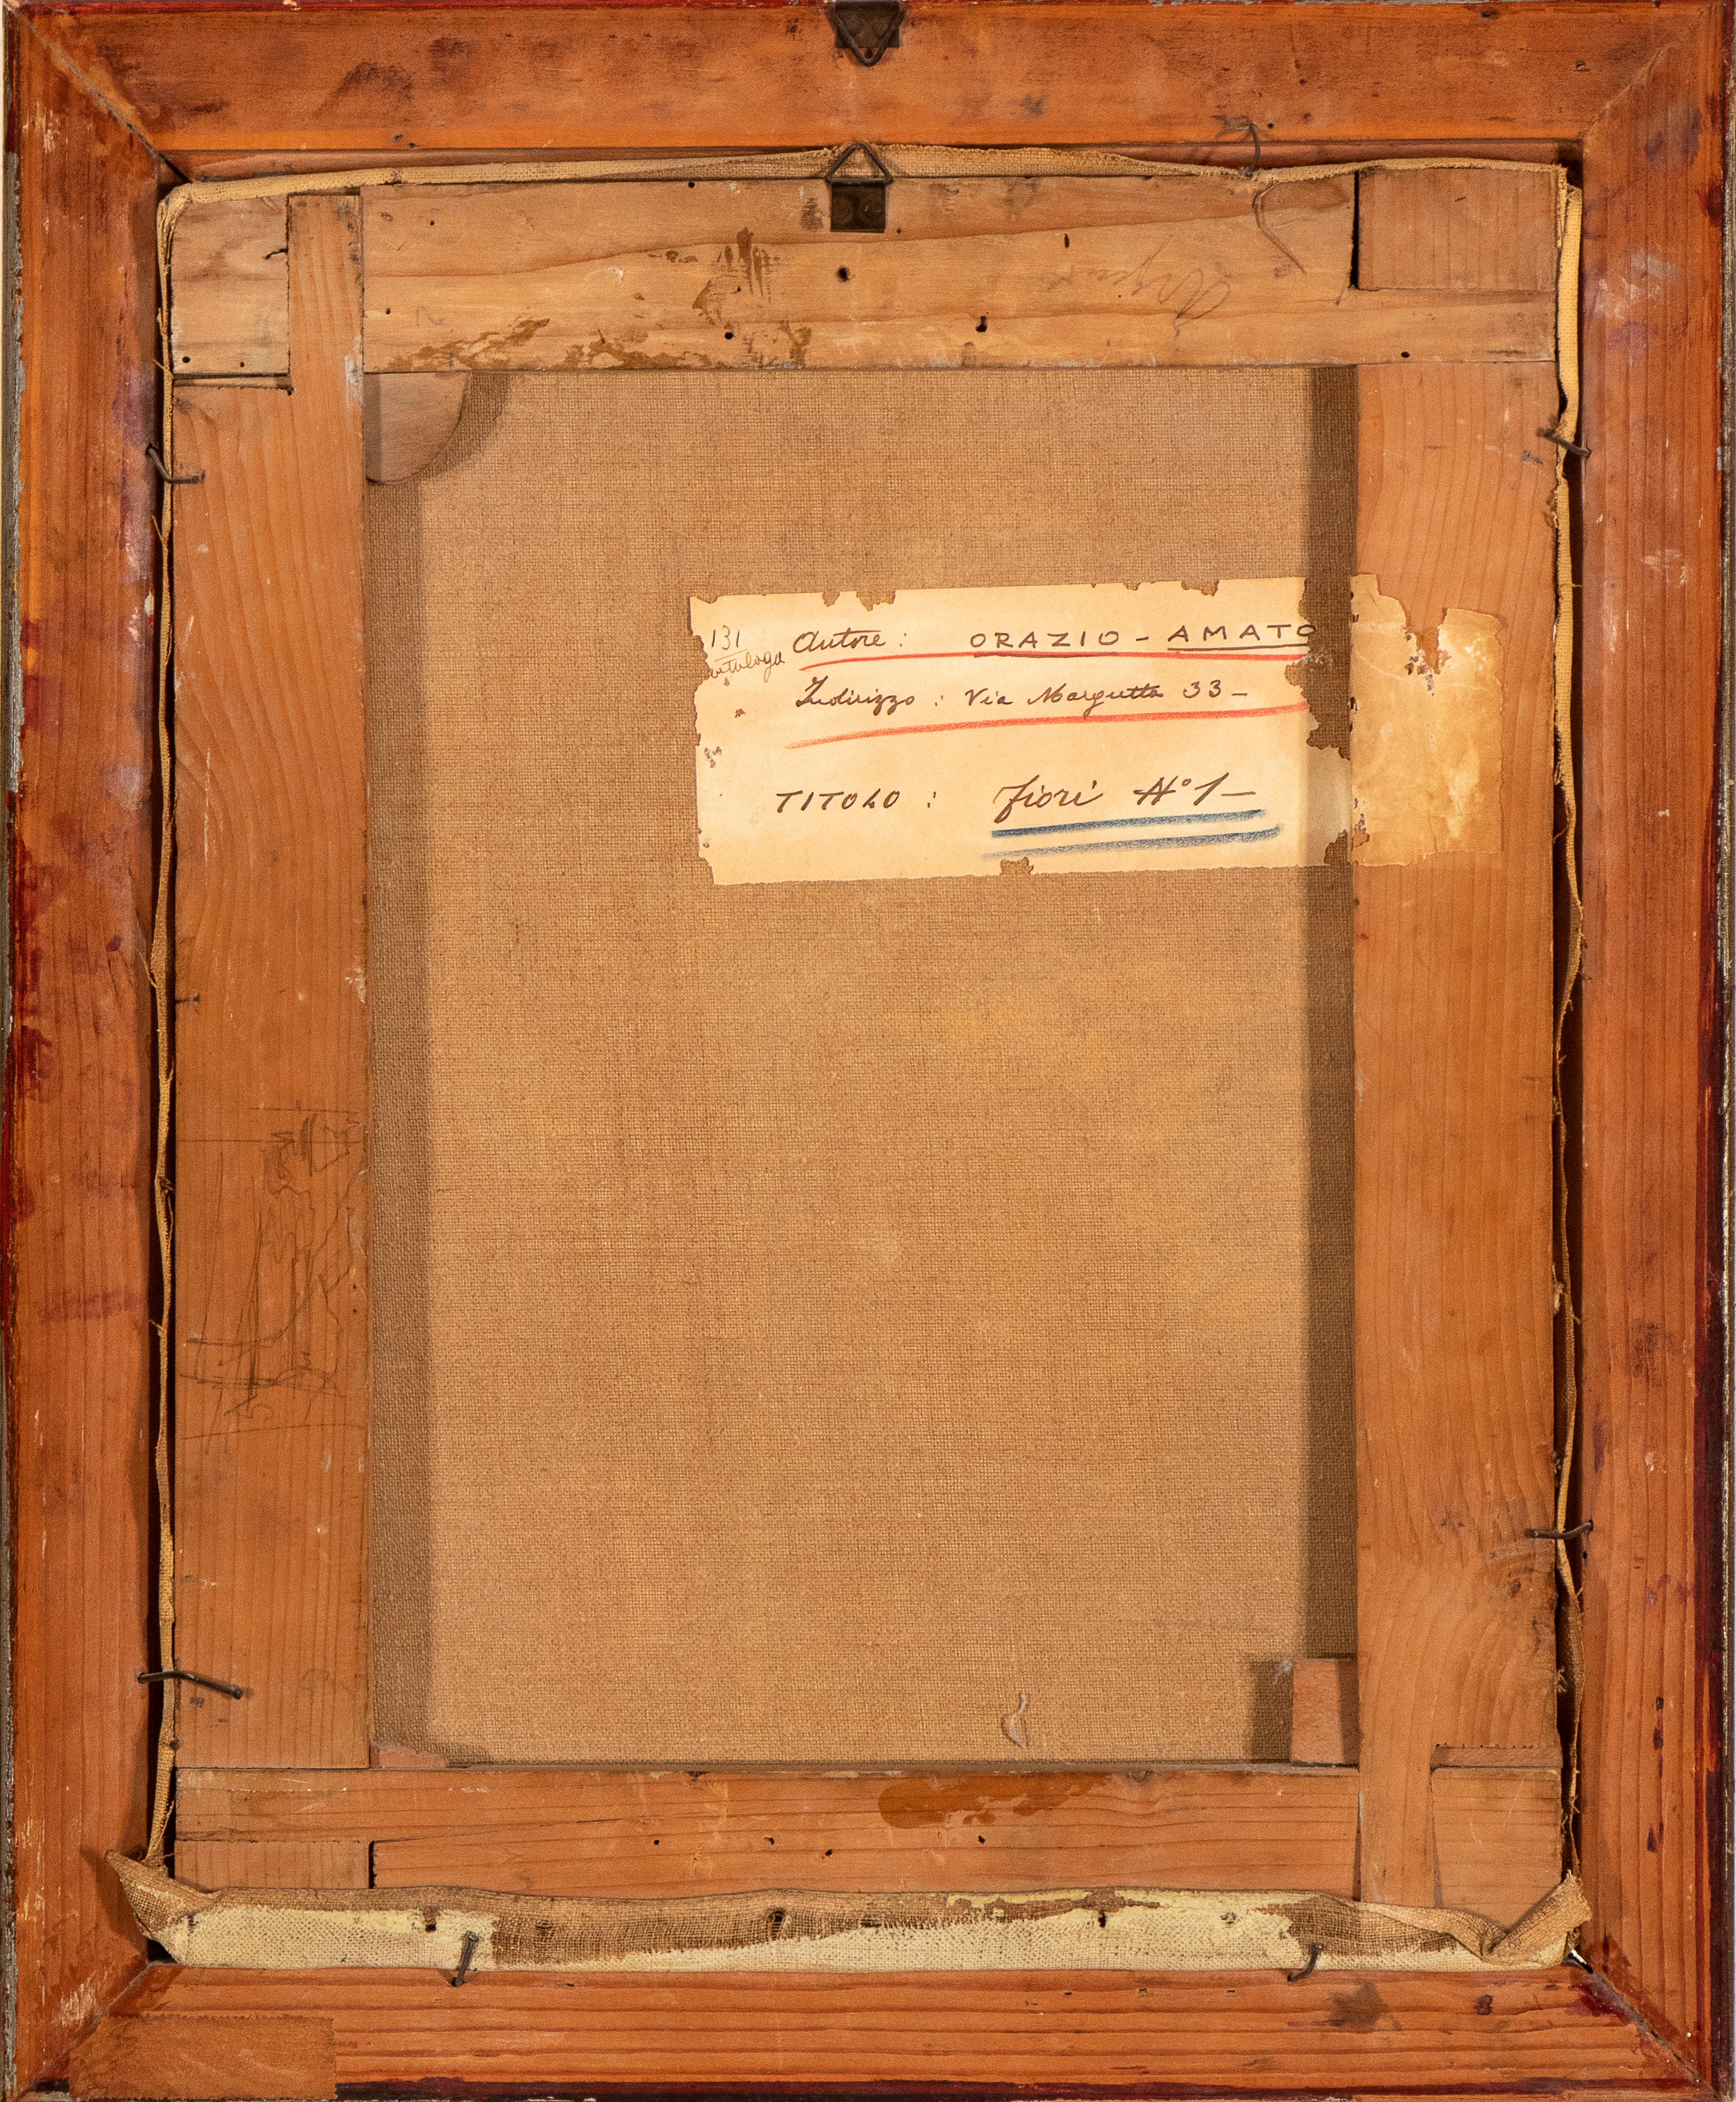 131
Autore : ORAZIO - AMATO
Indirizzo : Via Margutta 33 -
TITOLO : Fiori N° 1 -